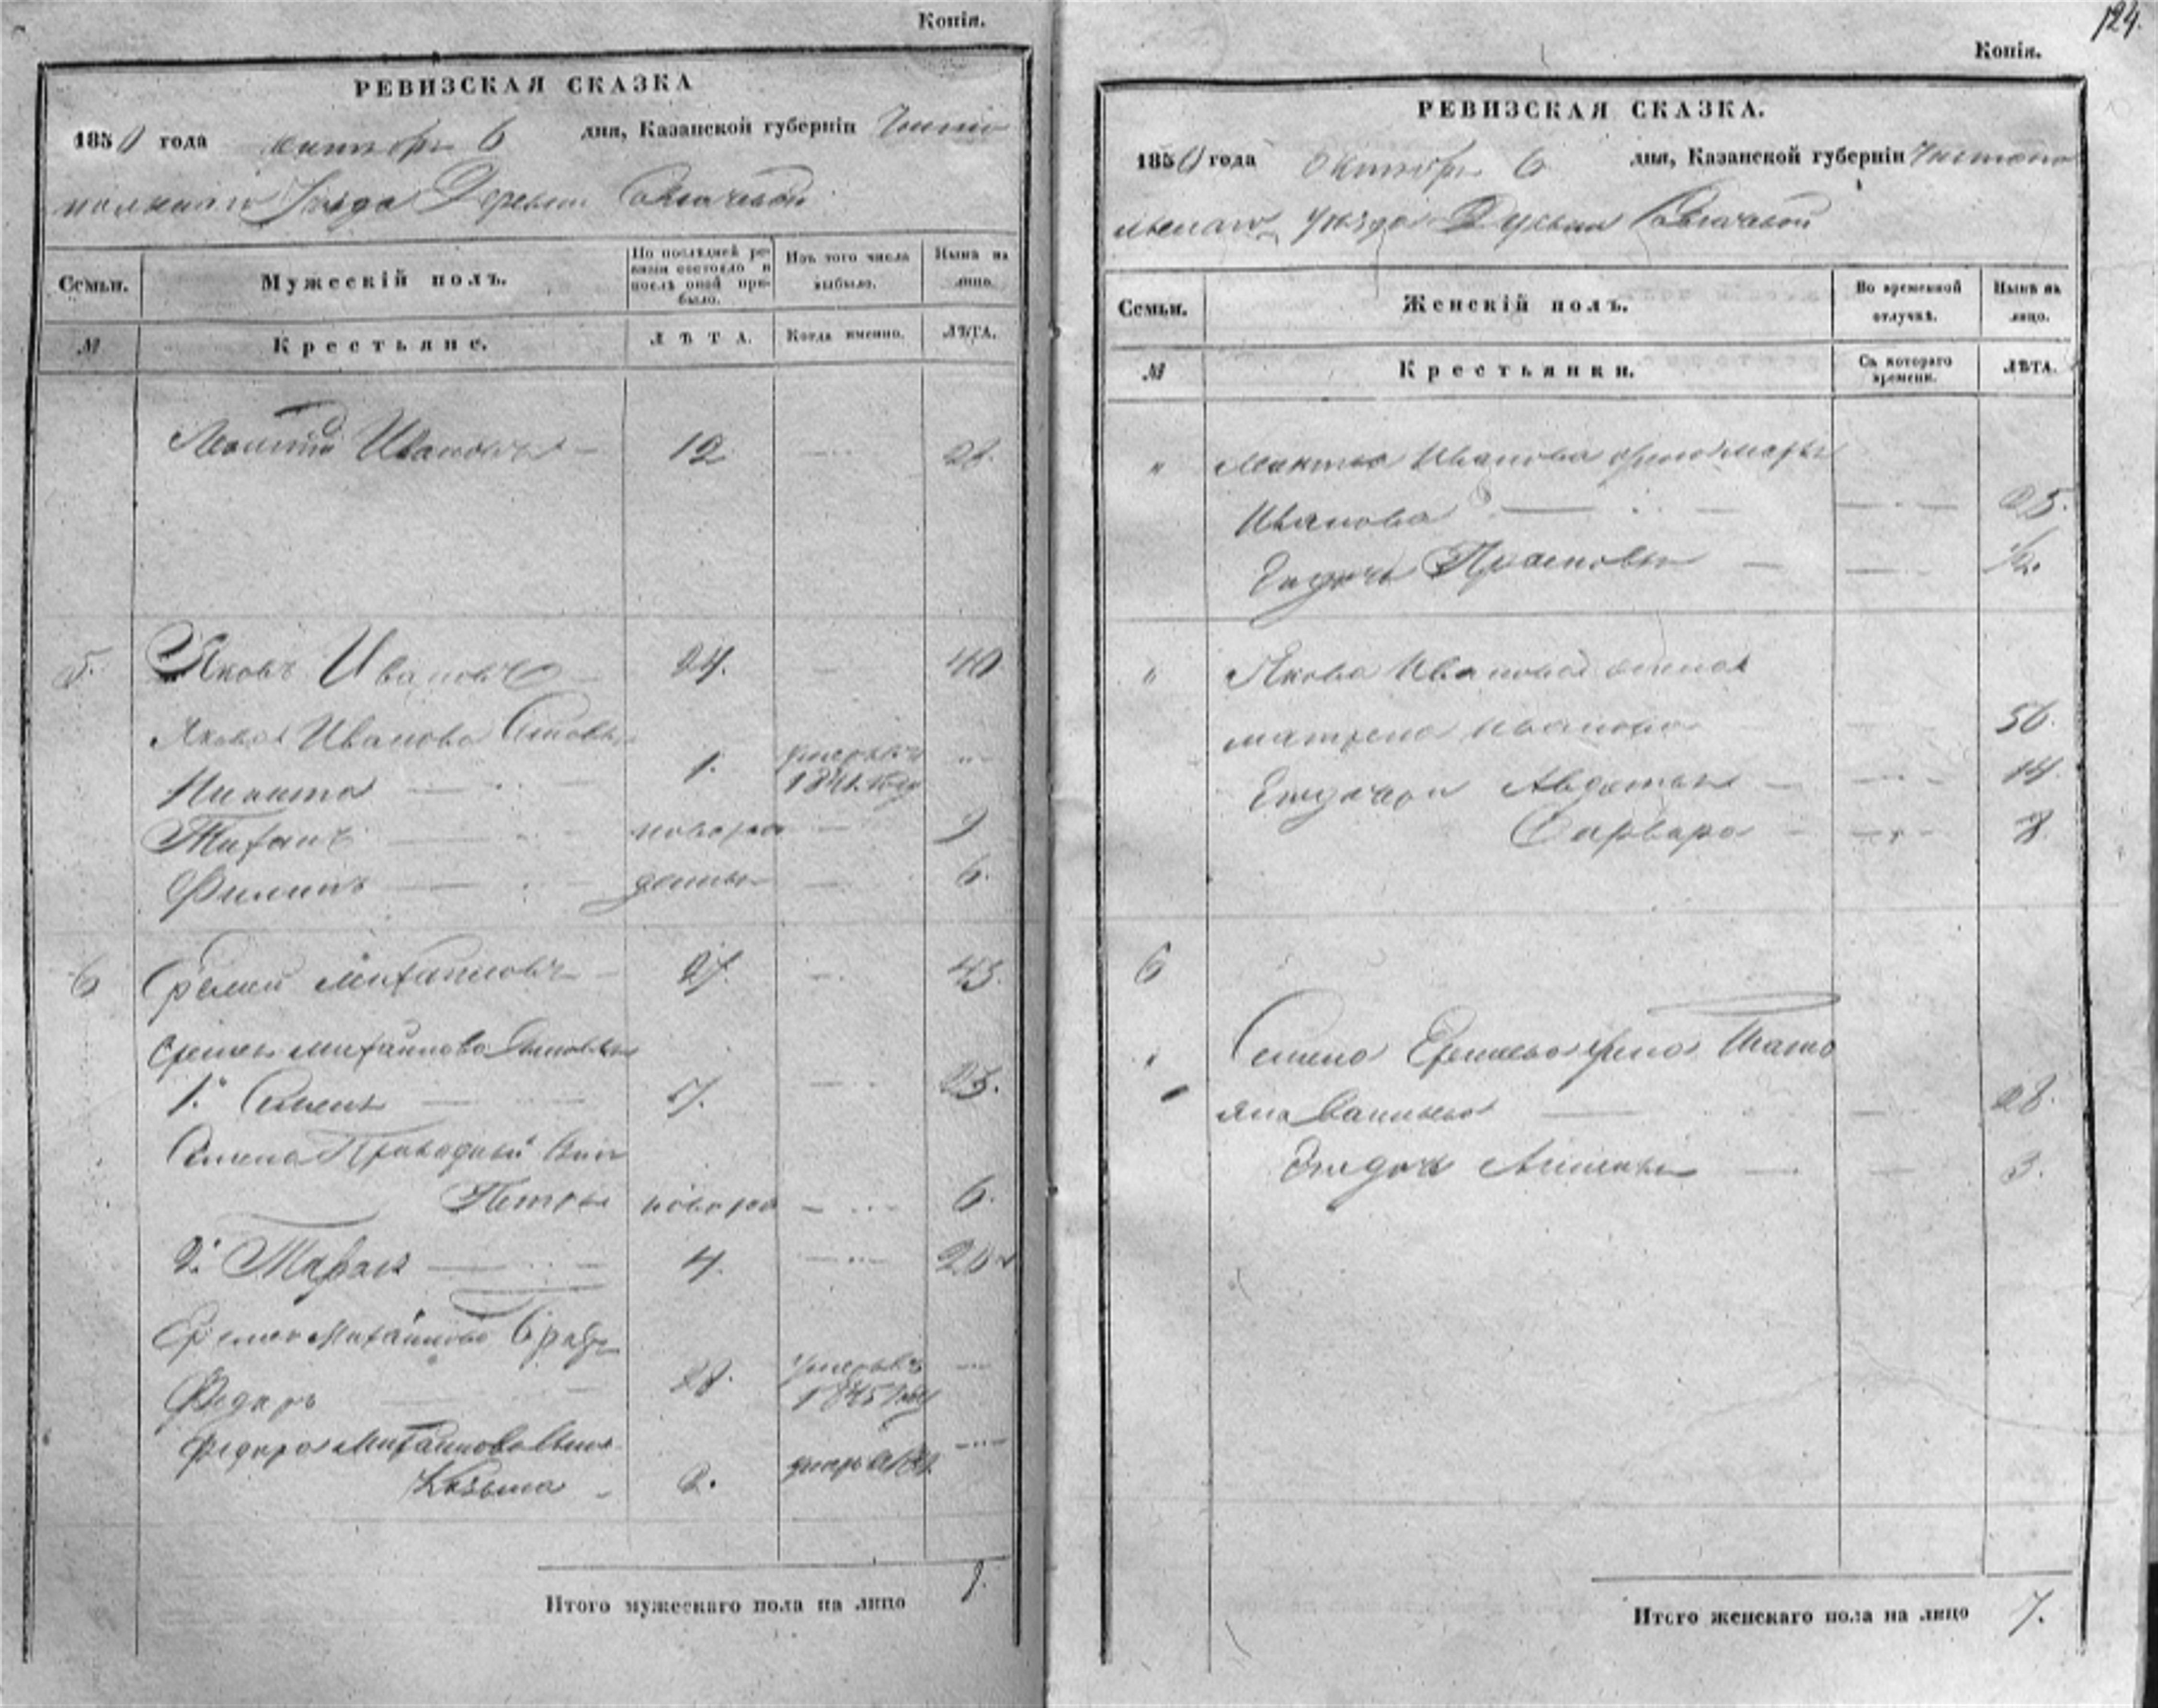 Копія.
РЕВИЗСКАЯ СКАЗКА
1850 года октября 6 дня, Казанской губерніи Чисто
польскаго Уезда Деревни
Семьи.
Мужескій полъ.
По послѣдней ре-
визіи состояло и
послѣ оной при-
было.
Изъ того числа
выбыло.
Нынѣ на
лицо.
№
Крестьяне.
ЛѢТА.
Когда именно.
ЛѢТА.
Ивановъ 12 28.
5. Яковъ Ивановъ 24. 40
Якова Иванова Сыновья
Никита 1. умеръ въ
1841 году
Тихонъ новоро 9
Филипъ денны 6.
6 Еремей Михайловъ 27. 43.
Еремея Михайлова Сыновья
1. Семенъ 7. 23.
Семена Приводный Сын
Петръ новоро 6.
2. Тарасъ 4. 20
Еремея Михайлова Братъ
Федаръ 28. умеръ въ
1845 году
Федора Михайлова Сынъ
Козьма 2.
Итого мужескаго пола на лицо 9.
124.
Копія.
РЕВИЗСКАЯ СКАЗКА.
1850 года Октября 6 дня, Казанской губерніи Чистопо
льскаго уѣзда Деревни
Семьи.
Женскій полъ.
Во временной
отлучкѣ.
Нынѣ на
лицо.
№
Крестьянки.
Съ котораго
времени.
ЛѢТА.
" Иванова жена Марья
Иванова 25.
Ея дочь 1/2.
" Якова Иванова жена
матрена иванова 50.
Его дочери Авдотья 14.
Варвара 8.
6
" Семена Еремеева жена Татья
яна Васильева 28.
Его дочь 3.
Итого женскаго пола на лицо 7.